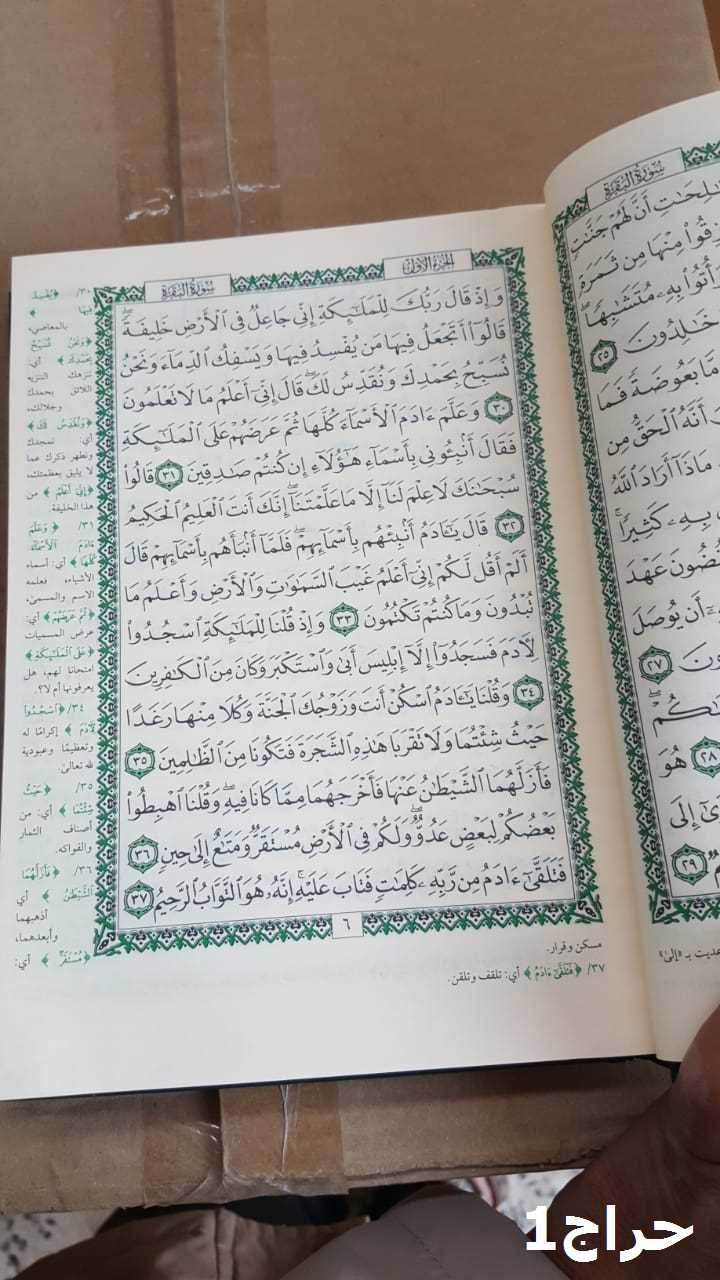 سُورَةُ البَقَرَة
الجُزءُ الأوّل
وَإِذْ قَالَ رَبُّكَ لِلْمَلَٰٓئِكَةِ إِنِّى جَاعِلٌ فِى ٱلْأَرْضِ خَلِيفَةً ۖ
قَالُوٓا۟ أَتَجْعَلُ فِيهَا مَن يُفْسِدُ فِيهَا وَيَسْفِكُ ٱلدِّمَآءَ وَنَحْنُ
نُسَبِّحُ بِحَمْدِكَ وَنُقَدِّسُ لَكَ ۖ قَالَ إِنِّىٓ أَعْلَمُ مَا لَا تَعْلَمُونَ
٣٠ وَعَلَّمَ ءَادَمَ ٱلْأَسْمَآءَ كُلَّهَا ثُمَّ عَرَضَهُمْ عَلَى ٱلْمَلَٰٓئِكَةِ
فَقَالَ أَنۢبِـُٔونِى بِأَسْمَآءِ هَٰٓؤُلَآءِ إِن كُنتُمْ صَٰدِقِينَ ٣١ قَالُوا۟
سُبْحَٰنَكَ لَا عِلْمَ لَنَآ إِلَّا مَا عَلَّمْتَنَآ ۖ إِنَّكَ أَنتَ ٱلْعَلِيمُ ٱلْحَكِيمُ
٣٢ قَالَ يَٰٓـَٔادَمُ أَنۢبِئْهُم بِأَسْمَآئِهِمْ ۖ فَلَمَّآ أَنۢبَأَهُم بِأَسْمَآئِهِمْ قَالَ
أَلَمْ أَقُل لَّكُمْ إِنِّىٓ أَعْلَمُ غَيْبَ ٱلسَّمَٰوَٰتِ وَٱلْأَرْضِ وَأَعْلَمُ مَا
تُبْدُونَ وَمَا كُنتُمْ تَكْتُمُونَ ٣٣ وَإِذْ قُلْنَا لِلْمَلَٰٓئِكَةِ ٱسْجُدُوا۟
لِـَٔادَمَ فَسَجَدُوٓا۟ إِلَّآ إِبْلِيسَ أَبَىٰ وَٱسْتَكْبَرَ وَكَانَ مِنَ ٱلْكَٰفِرِينَ
٣٤ وَقُلْنَا يَٰٓـَٔادَمُ ٱسْكُنْ أَنتَ وَزَوْجُكَ ٱلْجَنَّةَ وَكُلَا مِنْهَا رَغَدًا
حَيْثُ شِئْتُمَا وَلَا تَقْرَبَا هَٰذِهِ ٱلشَّجَرَةَ فَتَكُونَا مِنَ ٱلظَّٰلِمِينَ ٣٥
فَأَزَلَّهُمَا ٱلشَّيْطَٰنُ عَنْهَا فَأَخْرَجَهُمَا مِمَّا كَانَا فِيهِ ۖ وَقُلْنَا ٱهْبِطُوا۟
بَعْضُكُمْ لِبَعْضٍ عَدُوٌّ ۖ وَلَكُمْ فِى ٱلْأَرْضِ مُسْتَقَرٌّ وَمَتَٰعٌ إِلَىٰ حِينٍ ٣٦
فَتَلَقَّىٰٓ ءَادَمُ مِن رَّبِّهِۦ كَلِمَٰتٍ فَتَابَ عَلَيْهِ ۚ إِنَّهُۥ هُوَ ٱلتَّوَّابُ ٱلرَّحِيمُ ٣٧
٦
٣٠/ ﴿يُفْسِدُ
فِيهَا﴾
بالمعاصي،
﴿وَنَحْنُ نُسَبِّحُ
بِحَمْدِكَ﴾ أي:
ننزهك التنزيه
اللائق بحمدك
وجلالك،
﴿وَنُقَدِّسُ لَكَ﴾
أي: نمجدك
ونطهر ذكرك عما
لا يليق بعظمتك،
﴿إِنِّىٓ أَعْلَمُ﴾ من
هذا الخليفة.
٣١/ ﴿وَعَلَّمَ
ءَادَمَ ٱلْأَسْمَآءَ
كُلَّهَا﴾ أي: أسماء
الأشياء، فعلمه
الاسم والمسمى،
﴿ثُمَّ عَرَضَهُمْ﴾ أي:
عرض المسميات
﴿عَلَى ٱلْمَلَٰٓئِكَةِ﴾
امتحانا لهم، هل
يعرفونها أم لا؟.
٣٤/ ﴿ٱسْجُدُوا۟
لِـَٔادَمَ﴾ إكرامًا له
وتعظيمًا وعبودية
لله تعالى.
٣٥/ ﴿حَيْثُ
شِئْتُمَا﴾ أي: من
أصناف الثمار
والفواكه.
٣٦/ ﴿فَأَزَلَّهُمَا
ٱلشَّيْطَٰنُ﴾ أي
أذهبهما
وأبعدهما،
﴿مُسْتَقَرٌّ﴾ أي:
مسكن وقرار.
٣٧/ ﴿فَتَلَقَّىٰٓ ءَادَمُ﴾ أي: تلقف وتلقن.
سُورَةُ البَقَرَة
أَنَّ لَهُمْ جَنَّٰتٍ
مِنْهَا مِن ثَمَرَةٍ
بِهِۦ مُتَشَٰبِهًا ۖ
خَٰلِدُونَ ٢٥
مَّا بَعُوضَةً فَمَا
أَنَّهُ ٱلْحَقُّ مِن
مَاذَآ أَرَادَ ٱللَّهُ
بِهِۦ كَثِيرًا ۚ
عَهْدَ
أَن يُوصَلَ
٢٧
٢٨ هُوَ
إِلَى
٢٩
عديت بـ «إلى»
حراج1